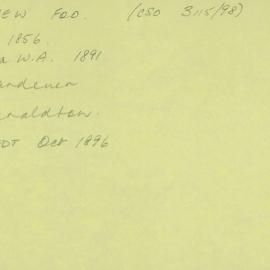 EW FOO. (CSO 3115/98)
1856.
a W.A. 1891
ardener
raldton.
DT Oct 1896